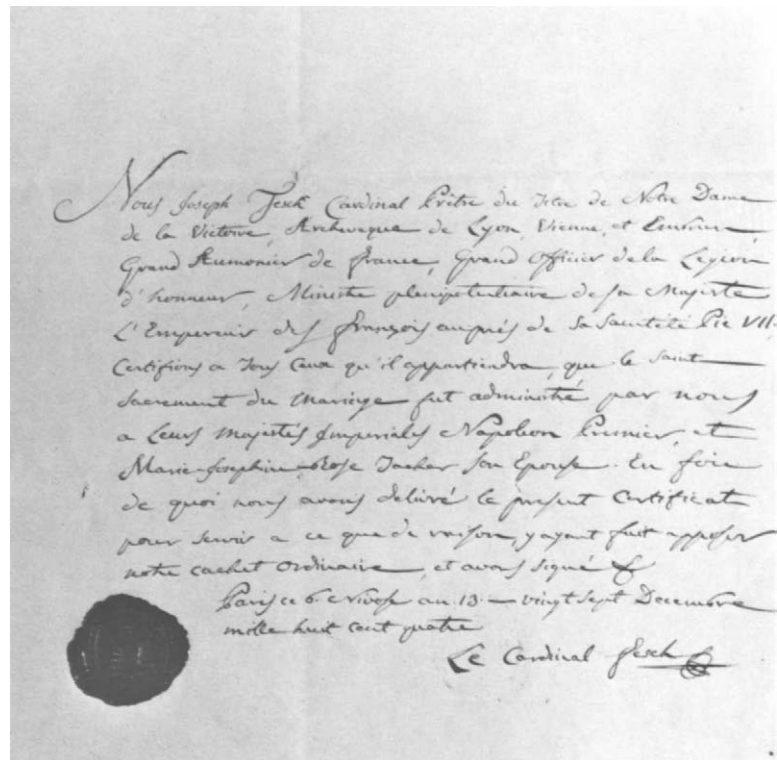 Nous Joseph Fesch Cardinal Prêtre du Titre de Notre Dame
de la Victoire, Archeveque de Lyon, Vienne, et Embrun,
Grand Aumonier de france, Grand Officier de la Legion
d'honneur, Ministre plenipotentiaire de sa Majeste
L'Empereur des françois auprés de sa Sainteté Pie VII,
Certifions a Tous Ceux qu'il appartiendra, que le saint
sacrement du Mariage fut administré par nous
a Leurs Majestés Imperiales Napoleon Premier, et
Marie-Josephine-Rose Tacher son Epouse. En foi
de quoi nous avons delivré le present Certificat
pour servir a ce que de raison, y ayant fait apposer
notre cachet ordinaire, et avons signé
Paris ce 6. nivose an 13 — vingt sept Decembre
mille huit cent quatre
Le Cardinal Fesch